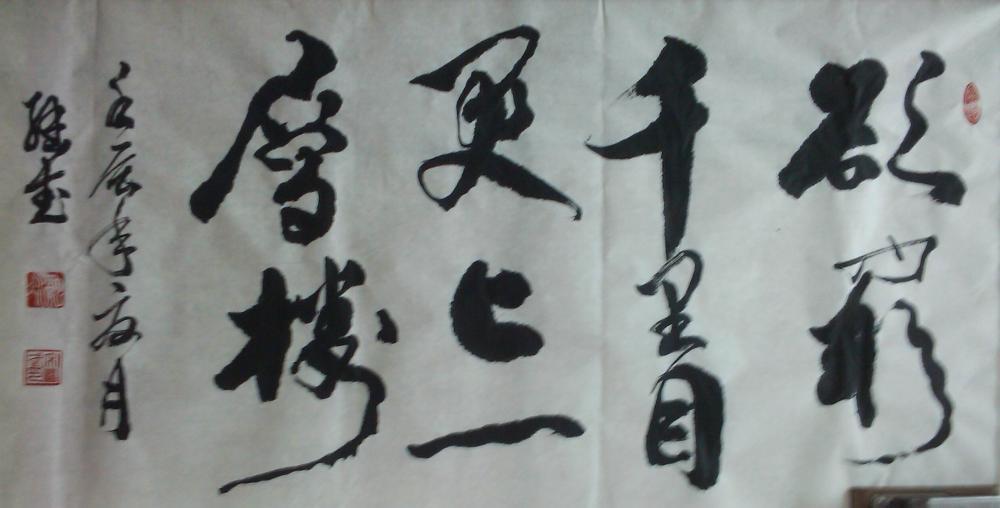 欲穷
千里目
更上一
层楼
壬辰年夏月